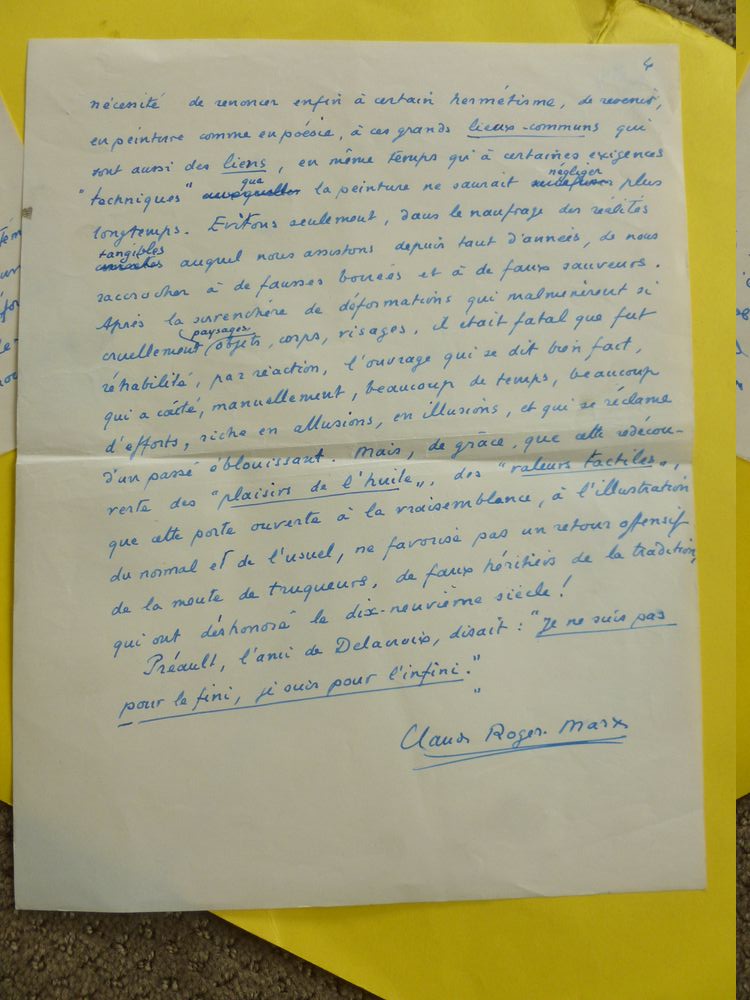 4
nécessité de renoncer enfin à certain hermétisme, de revenir,
en peinture comme en poésie, à ces grands lieux-communs qui
sont aussi des liens, en même temps qu'à certaines exigences
"techniques" que la peinture ne saurait négliger plus
longtemps. Evitons seulement, dans le naufrage des réalités
tangibles auquel nous assistons depuis tant d'années, de nous
raccrocher à de fausses bouées et à de faux sauveurs.
Après la surenchère de déformations qui malmenèrent si
cruellement paysages, objets, corps, visages, il était fatal que fut
réhabilité, par réaction, l'ouvrage qui se dit bien fait,
qui a coûté, manuellement, beaucoup de temps, beaucoup
d'efforts, riche en allusions, en illusions, et qui se réclame
d'un passé éblouissant. Mais, de grâce, que cette redécou-
verte des "plaisirs de l'huile", des "valeurs tactiles",
que cette porte ouverte à la vraisemblance, à l'illustration
du normal et de l'usuel, ne favorise pas un retour offensif
de la meute de truqueurs, de faux héritiers de la tradition,
qui ont déshonoré le dix-neuvième siècle!
Préault, l'ami de Delacroix, disait : "Je ne suis pas
pour le fini, je suis pour l'infini."
"
Claude Roger-Marx